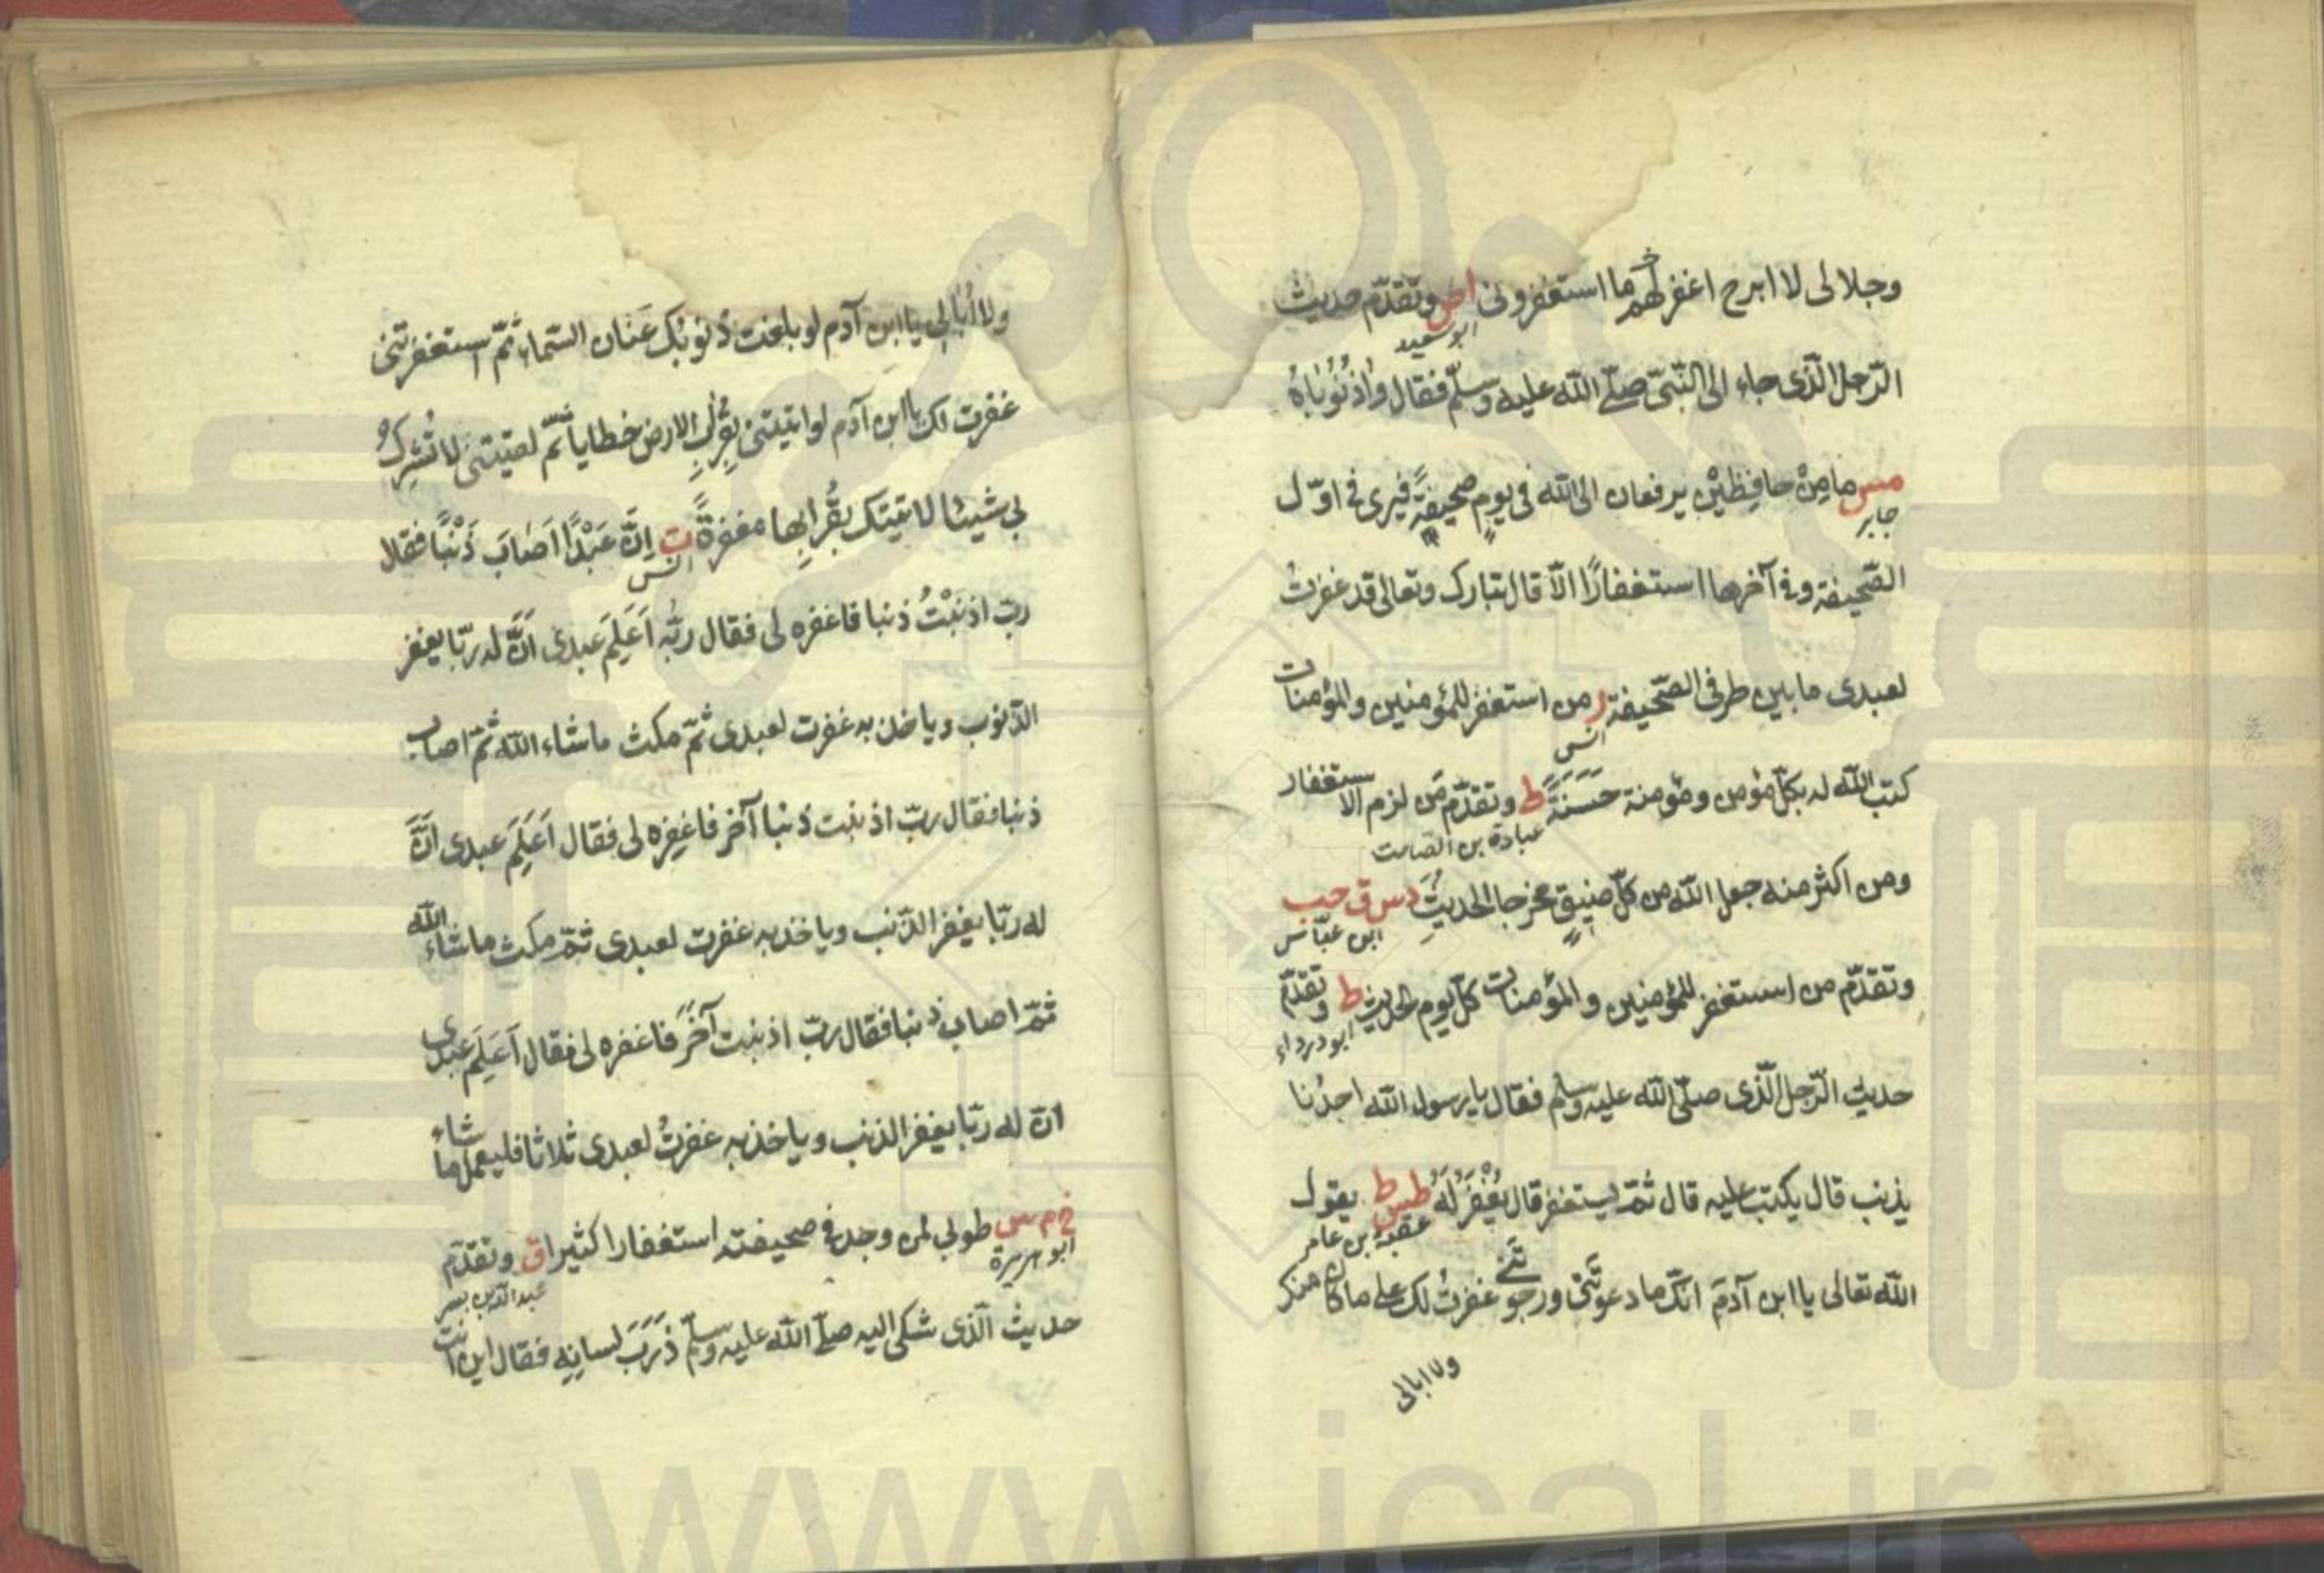 وجلالى لا ابرح اغفر لهم ما استغفرونى اص وتقدّم حديث
ابو سعيد
الرّجل الّذى جاء الى النّبىّ صلّى اللّه عليه وسلّم فقال واذُنُوباهُ
مس ما مِنْ حافِظَيْنِ يرفعان الى اللّه فى يومٍ صحيفةً فيرى فى اوّل
جابر
الصّحيفة وفى آخرها استغفارًا الّا قال تبارك وتعالى قد غفرتُ
لعبدى ما بين طرفى الصّحيفة ر من استغفر للمؤمنين والمؤمنات
انس
كتب اللّه له بكلّ مؤمن ومؤمنة حَسَنَةً ط وتقدّم مَن لزم الاستغفار
عبادة بن الصامت
ومن اكثر منه جعل اللّه من كلّ ضيقٍ مخرجا الحديثَ دس ق حب
ابن عبّاس
وتقدّم من استغفر للمؤمنين والمؤمنات كلّ يوم الحديث ط وتقدّم
ابو درداء
حديث الرّجل الّذى صلّى اللّه عليه وسلم فقال يا رسول اللّه احدُنا
يذنب قال يكتب عليه قال ثمّ يستغفر قال يُغْفَرُ لَهُ طس ط يقول
عقبة بن عامر
اللّه تعالى يا ابن آدمَ انّك ما دعوتَنى ورجوتَنى غفرتُ لك على ما كان منك
ولا ابالى
ولا اُبالِى يا ابن آدم لو بلغت ذنوبُك عَنان السّماء ثمّ استغفرتنى
غفرت لك يا ابن آدم لو اتيتنى بقُرابِ الارض خطايا ثمّ لقيتنى لا تُشْرِكُ
بى شيئا لاتيتك بقُرابِها مغفرةً ت اِنّ عَبْدًا اَصابَ ذَنْبًا فقال
انس
ربّ اذنَبْتُ ذنبا فاغفره لى فقال ربّه اَعَلِمَ عبدى اَنَّ له ربّا يغفر
الذّنوب وياخذ به غفرت لعبدى ثمّ مكث ما شاء اللّه ثمّ اصاب
ذنبا فقال ربّ اذنبت ذنبا آخر فاغفِره لى فقال اَعَلِمَ عبدى اَنَّ
له ربّا يغفر الذّنب وياخذ به غفرت لعبدى ثمّ مكث ما شاء اللّه
ثمّ اصاب ذنبا فقال ربّ اذنبت آخرَ فاغفره لى فقال اَعَلِمَ عبدى
انّ له ربّا يغفر الذنب وياخذ به غفرتُ لعبدى ثلاثا فليعمل ما شاء
خ م س طوبى لمن وجد فى صحيفته استغفارا كثيرا ق وتقدّم
ابو هريرة
عبد اللّه بن بسر
حديث الّذى شكى اليه صلّى اللّه عليه وسلّم ذَرَبَ لسانِه فقال اين انت
www.ical.ir